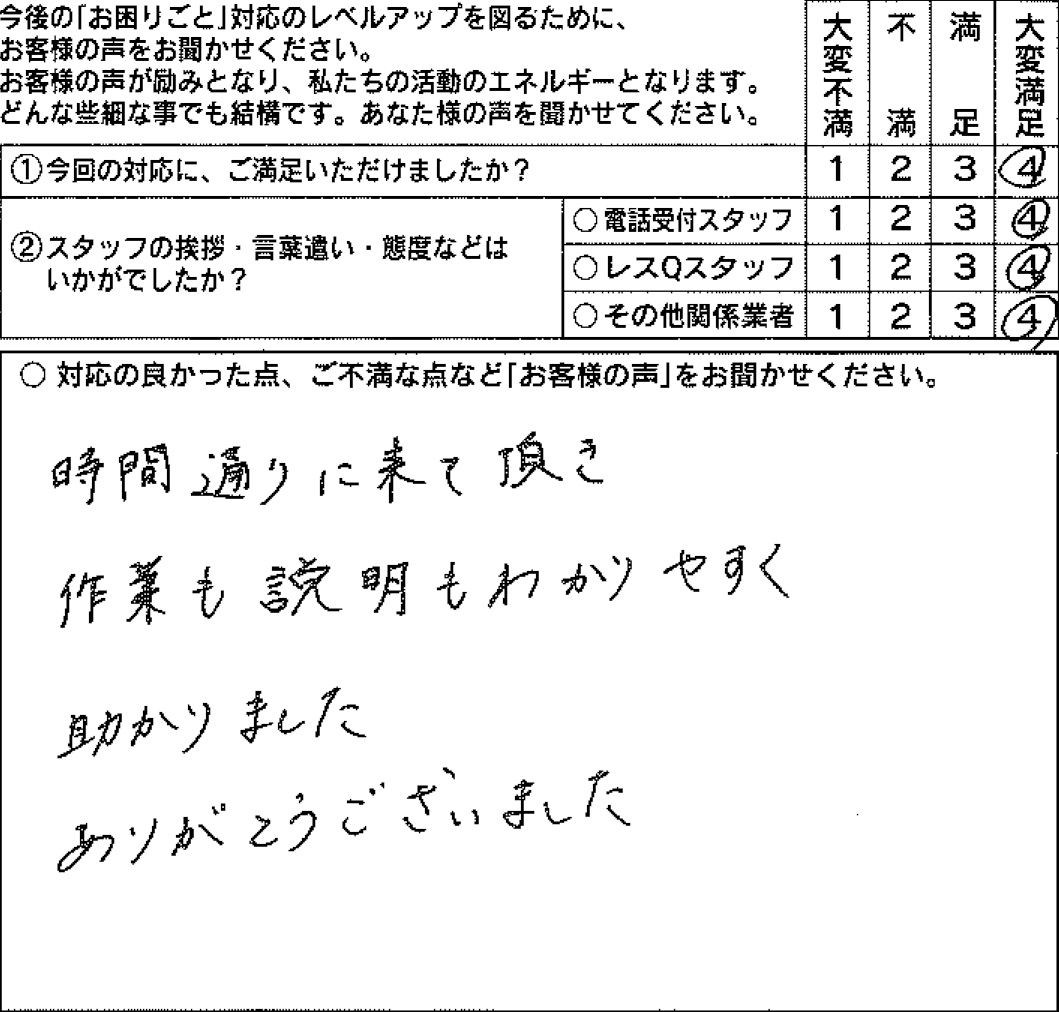 今後の「お困りごと」対応のレベルアップを図るために、
お客様の声をお聞かせください。
お客様の声が励みとなり、私たちの活動のエネルギーとなります。
どんな些細な事でも結構です。あなた様の声を聞かせてください。
大変不満 不満 満足 大変満足
①今回の対応に、ご満足いただけましたか? 1 2 3 4
②スタッフの挨拶・言葉遣い・態度などは
いかがでしたか?
○電話受付スタッフ 1 2 3 4
○レスQスタッフ 1 2 3 4
○その他関係業者 1 2 3 4
○対応の良かった点、ご不満な点など「お客様の声」をお聞かせください。
時間通りに来て頂き
作業も説明もわかりやすく
助かりました
ありがとうございました